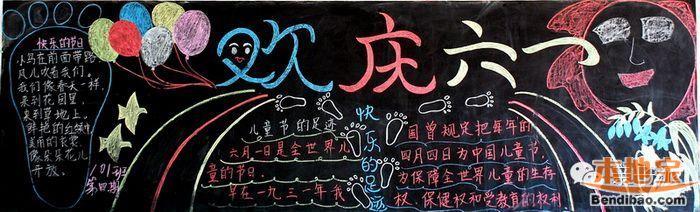 欢庆六一
快乐的节日
小鸟在前面带路
风儿吹着我们。
我们像春天一样,
来到花园里,
来到草地上。
鲜艳的红领巾
美丽的衣裳,
像朵朵花儿
开放。
101班
第四期
儿童节的足迹
六月一日是全世界儿
童的节日。
早在一九三一年我
快乐的足迹
国曾规定把每年的
四月四日为中国儿童节,
为保障全世界儿童的生存
权、保健权和受教育的权利
本地宝
Bendibao.com